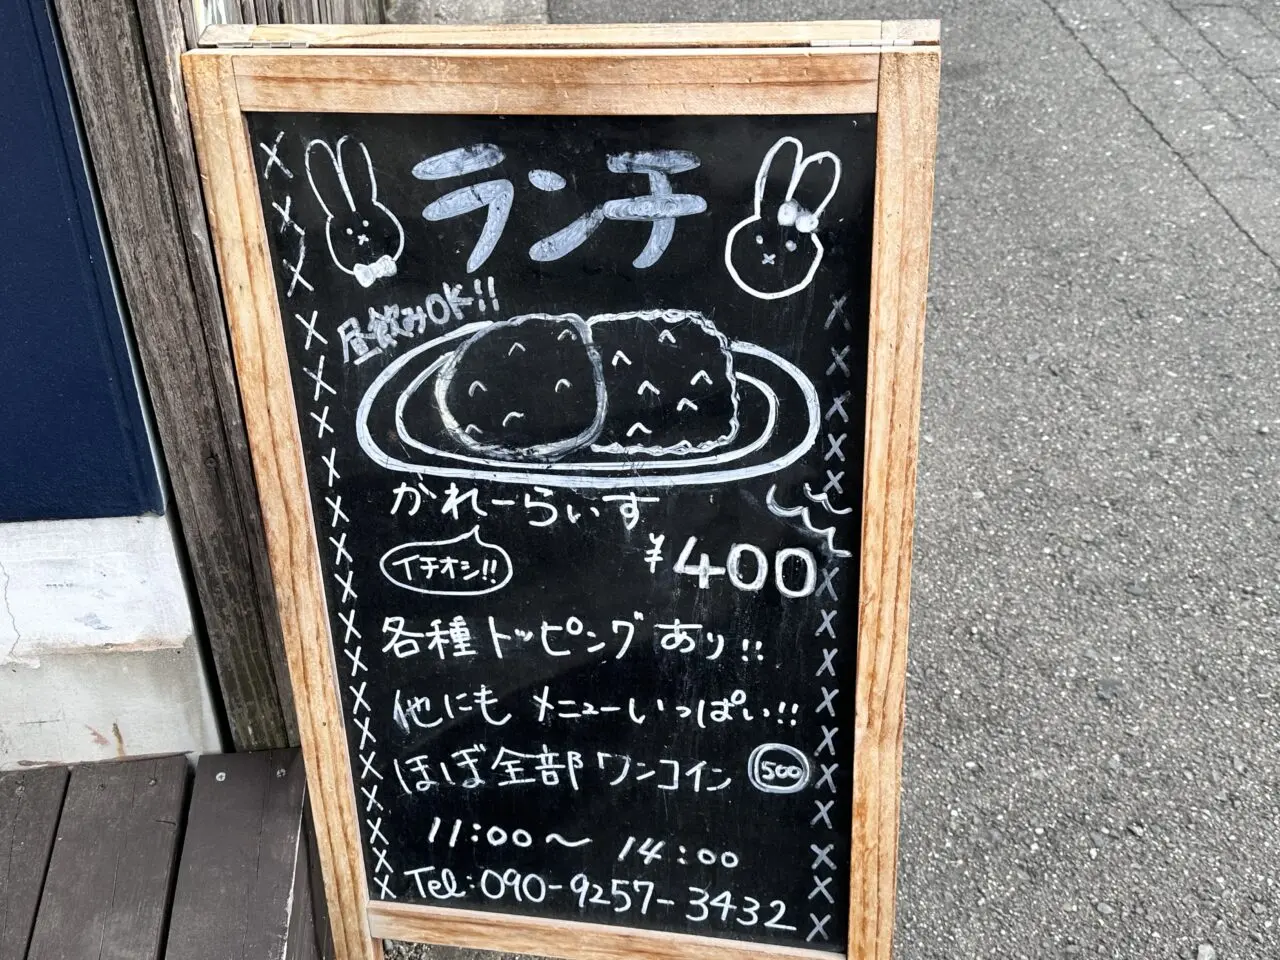 ランチ
昼飲みOK!!
かれーらいす
イチオシ!!
¥400
各種トッピングあり!!
他にもメニューいっぱい!!
ほぼ全部ワンコイン 500
11:00〜14:00
Tel:090-9257-3432